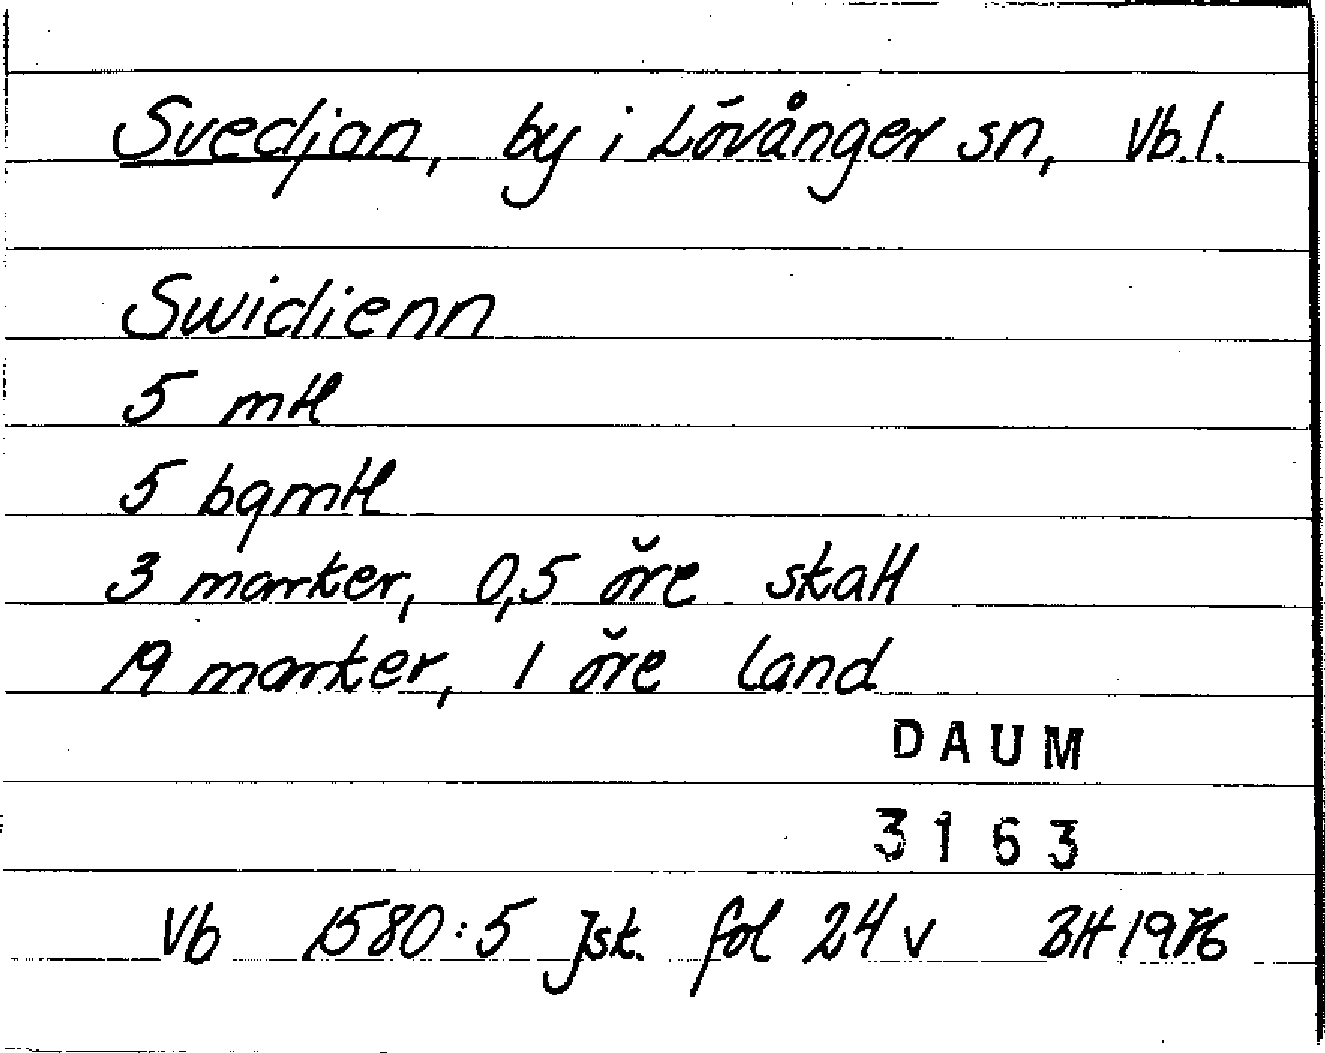 Svedjan, by i Lövånger sn, Vb.l.
Swidienn
5 mtl
5 bqmtl
3 marker, 0,5 öre skatt
19 marker, 1 öre land
DAUM
3163
Vb 1580:5 Jsk. fol 24 v BH 1976